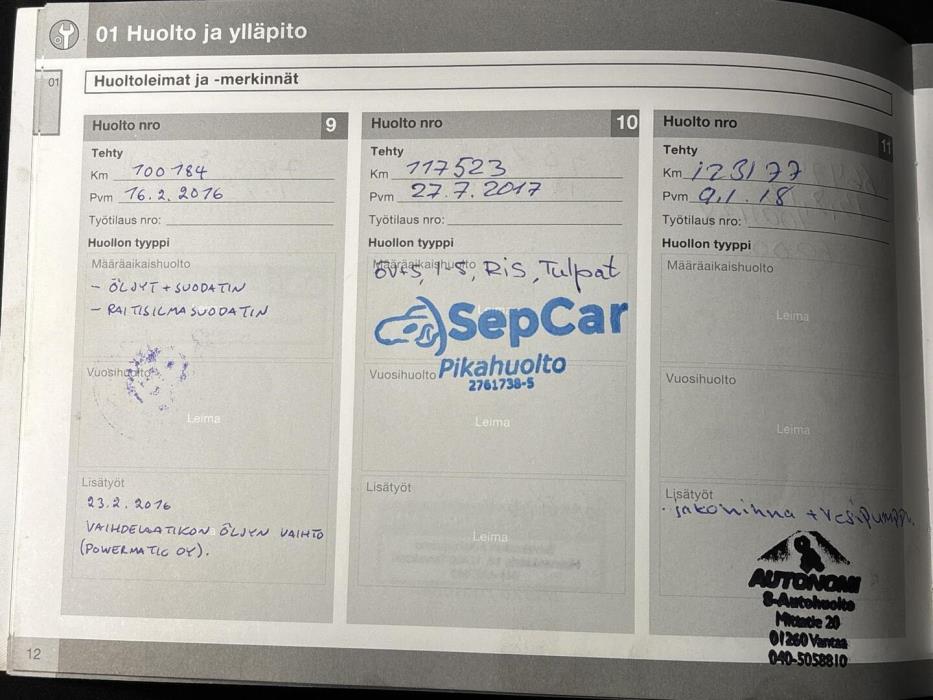 01 Huolto ja ylläpito
01
Huoltoleimat ja -merkinnät
Huolto nro 9
Tehty
Km 100 184
Pvm 16.2.2016
Työtilaus nro:
Huollon tyyppi
Määräaikaishuolto
- ÖLJYT + SUODATIN
- RAITISILMASUODATIN
Vuosihuolto
Leima
Lisätyöt
23.2.2016
VAIHDELAATIKON ÖLJYN VAIHTO
(POWERMATIC OY).
Huolto nro 10
Tehty
Km 117523
Pvm 27.7.2017
Työtilaus nro:
Huollon tyyppi
Määräaikaishuolto
ÖV+S, I-S, RiS, Tulpat
SepCar
Pikahuolto
2761738-5
Vuosihuolto
Leima
Lisätyöt
Leima
Huolto nro 11
Tehty
Km 123177
Pvm 9.1.18
Työtilaus nro:
Huollon tyyppi
Määräaikaishuolto
Leima
Vuosihuolto
Leima
Lisätyöt
. jakohihna + Vesipumppu.
AUTONOMI
8-Autohuolto
Mittatie 20
01260 Vantaa
040-5058810
12